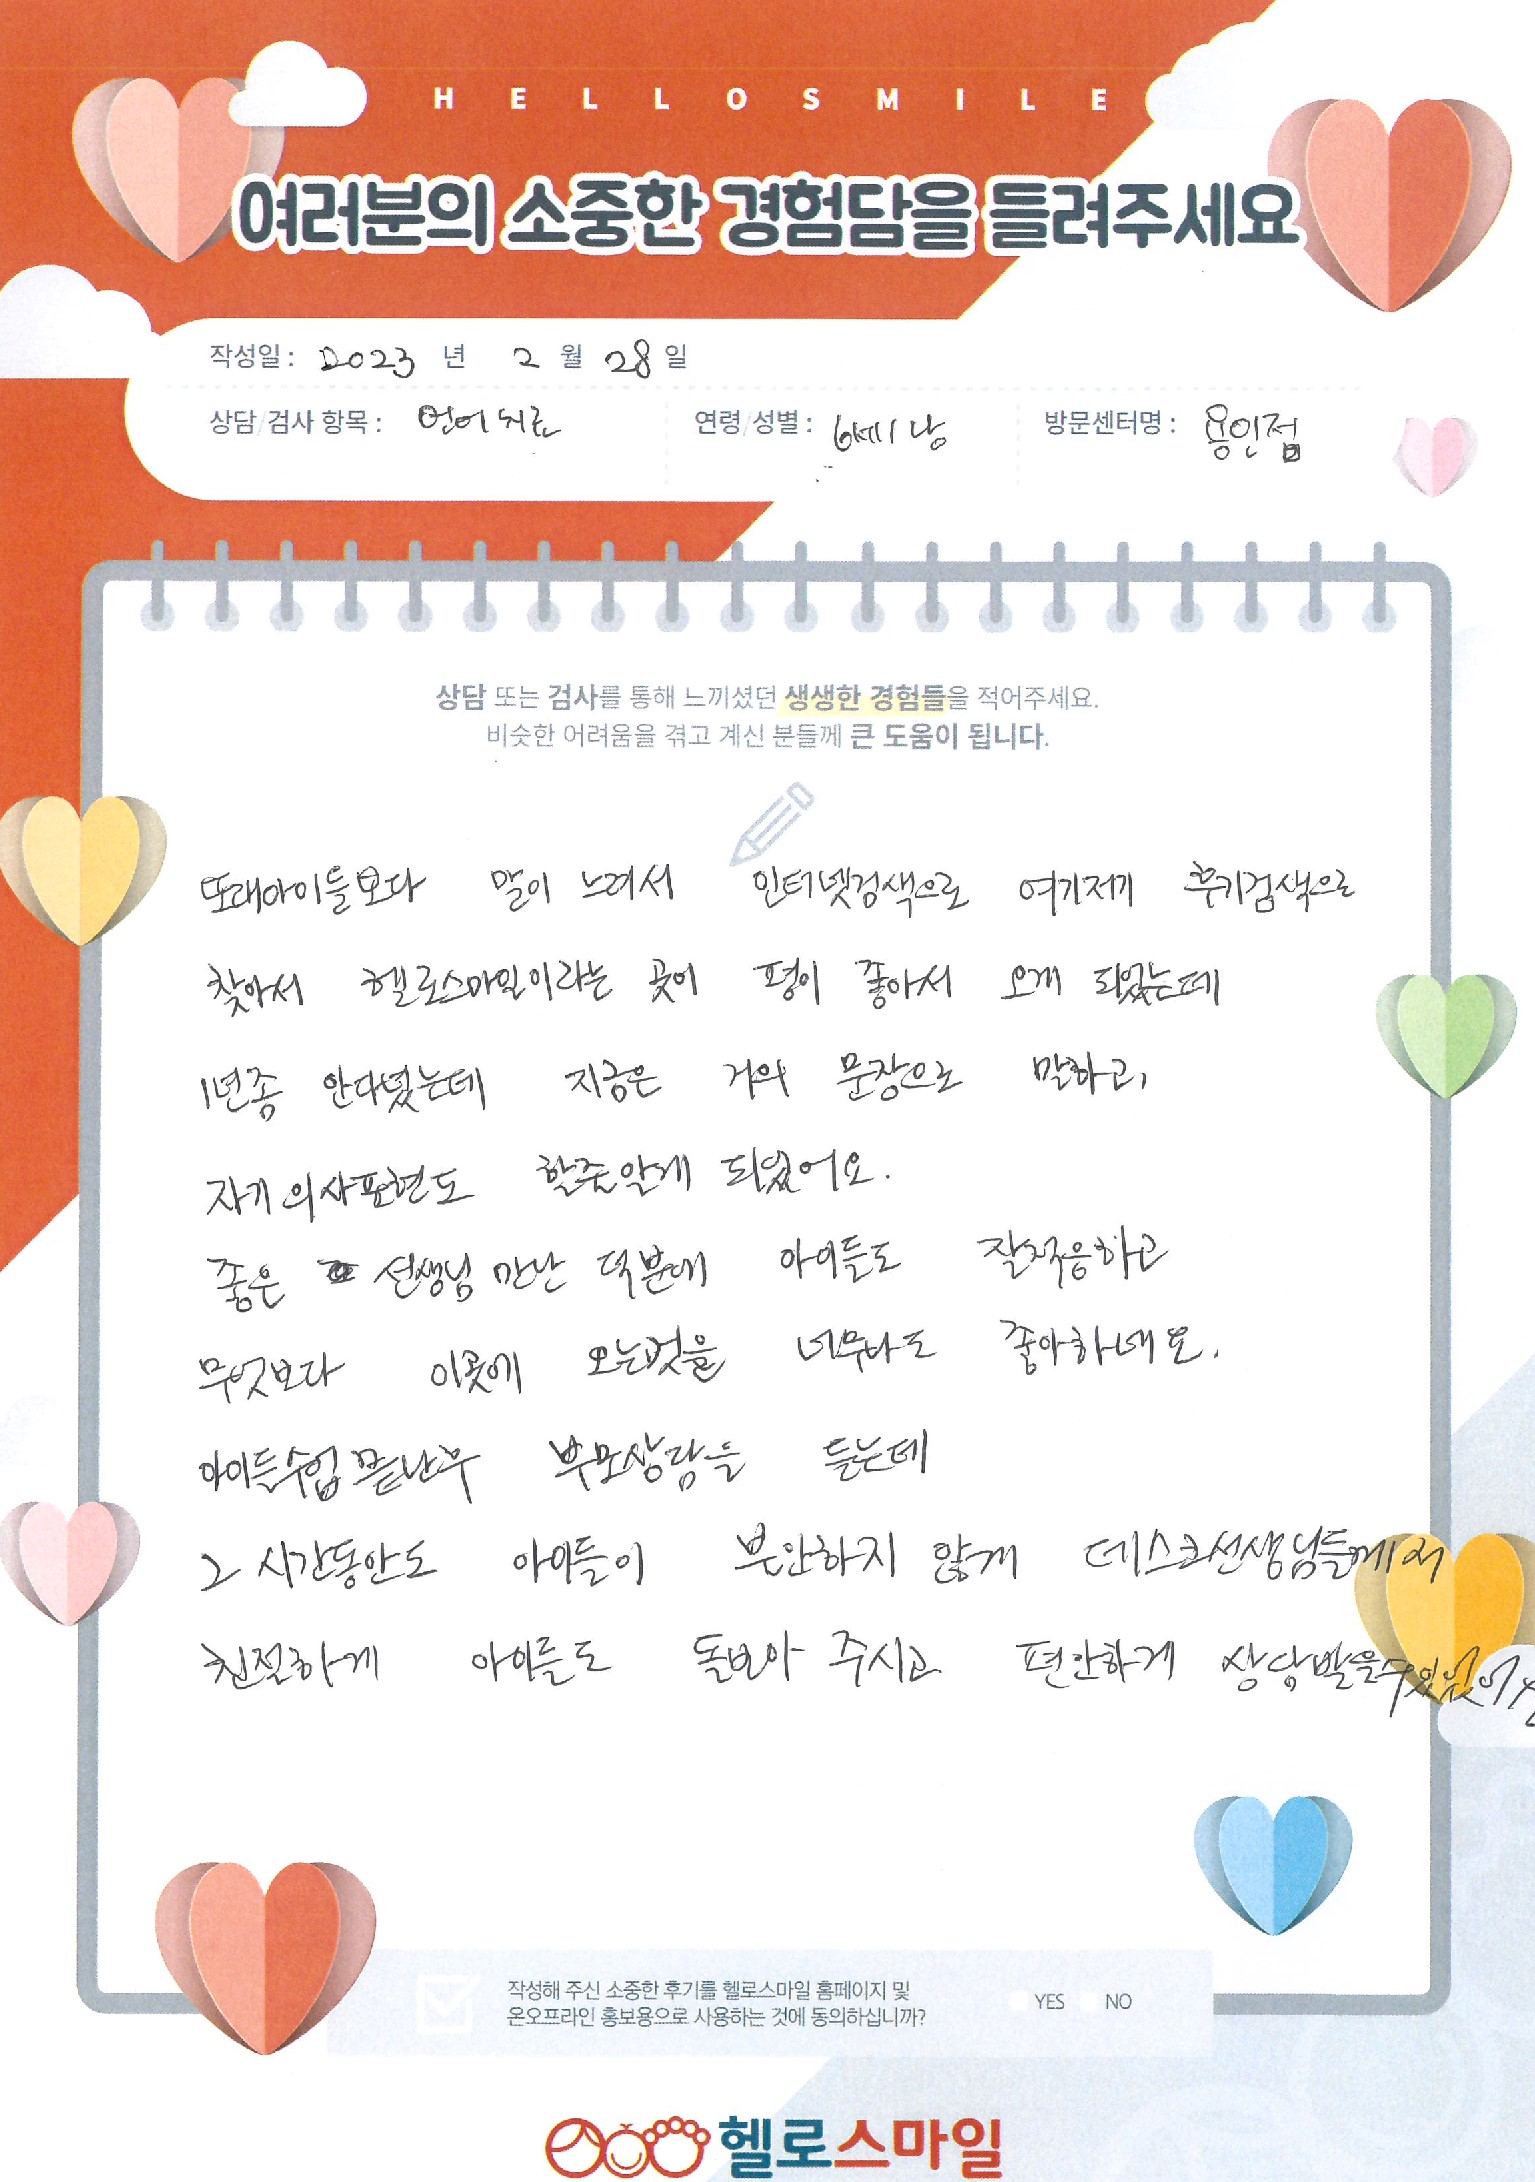 HELLOSMILE
여러분의 소중한 경험담을 들려주세요
작성일 : 2023 년 2 월 28 일
상담/검사 항목 : 언어치료 연령/성별 : 6세 / 남 방문센터명 : 용인점
상담 또는 검사를 통해 느끼셨던 생생한 경험들을 적어주세요.
비슷한 어려움을 겪고 계신 분들께 큰 도움이 됩니다.
또래아이들보다 말이 느려서 인터넷검색으로 여기저기 후기검색으로
찾아서 헬로스마일이라는 곳이 평이 좋아서 오게 되었는데
1년좀 안다녔는데 지금은 거의 문장으로 말하고,
자기 의사표현도 할줄알게 되었어요.
좋은 선생님 만난 덕분에 아이들도 잘적응하고
무엇보다 이곳에 오는것을 너무나도 좋아하네요.
아이들수업 끝난후 부모상담을 듣는데
그 시간동안도 아이들이 불안하지 않게 데스크선생님들께서
친절하게 아이들도 돌보아 주시고 편안하게 상담받을수있었어요
작성해 주신 소중한 후기를 헬로스마일 홈페이지 및
온오프라인 홍보용으로 사용하는 것에 동의하십니까? YES NO
헬로스마일